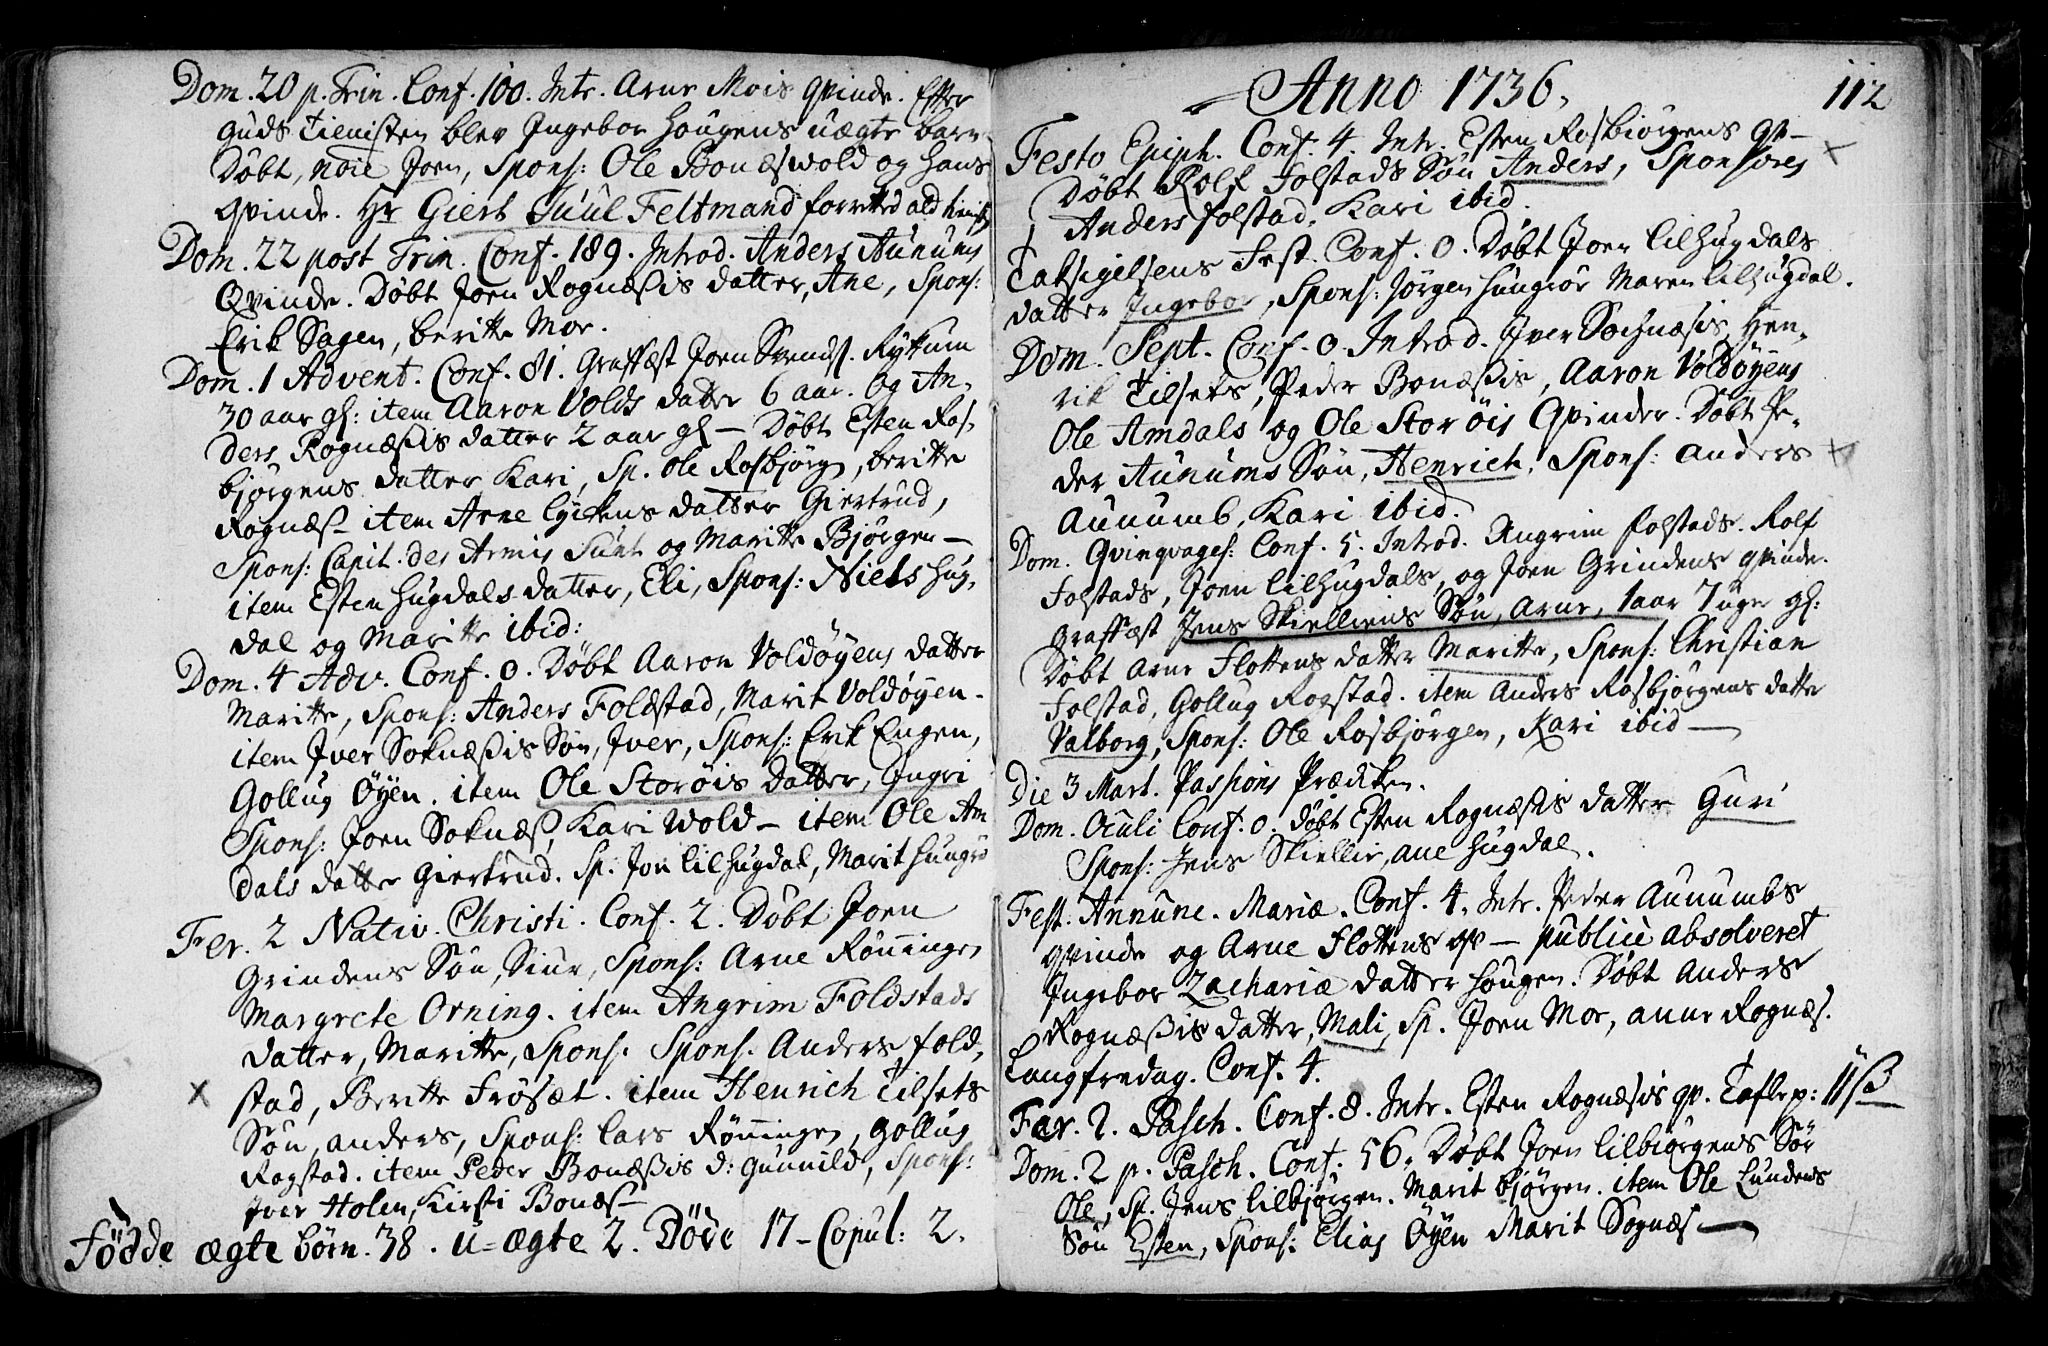 Dom. 20 p. Trin. Conf. 100. Intr. Arne Mois Qvinde. Efter
Guds Tienisten blev Ingebor Hougens uægte barn
Døbt, noīe Joen, Spons: Ole Bonæswold og hans
Qvinde. Hr Giert Suul Feltmand forretted ald
Dom. 22 post Trin. Conf. 189. Introd. Anders Aunums
Qvinde. Døbt Joen Rognæssis datter, Ane, Spons:
Erik Sagen, Beritte Moe.
Dom. 1 Advent. Conf. 81. Graffæst Joen Svends. Ryttum
30 aar gl: item Aaron Volds datter 6 aar. og An-
ders Rognæssis datter 2 aar gl – Døbt Esten Ros-
bjørgens datter Kari, Sp. Ole Rosbjørg, Beritte
Rognæs – item Arne Lychens datter Giertrud,
Spons: Capit. des Armis Sunt og Maritte Bjørgen –
item Esten Hugdals datter, Eli, Spons: Niels Hug-
dal og Maritte ibid:
Dom. 4 Adv. Conf. 0. Døbt Aaron Voldøyens datter
Maritte, Spons: Anders Foldstad, Marit Voldøyen –
item Iver Soknæssis Søn, Iver, Spons: Erik Engen,
Gollug Øyen. item Ole Storøis datter, Ingri
Spons: Joen Soknæs, Kari Wold – item Ole Am
dals datter Giertrud. Sp. Jon Lilhugdal, Marit Hungrø
Fer. 2 Nativ. Christi. Conf. 2. Døbt Joen
Grindens Søn, Siur, Spons: Arne Rønningen
Margrete Orning. item Angrim Foldstads
datter, Maritte, Spons. Spons. Anders Fold-
stad, Beritte Frøsæt. item Henrich Tilsets
Søn, Anders, Spons: Lars Rønningen, Gollug
Rogstad. item Peder Bonæssis d: Gunnild, Spons:
Iver Holen, Kirsti Bonæs –
Födde ægte børn. 38. u-ægte 2. Döde 17 – Copul: 2.
Anno 1736. 112
Festo Epiph. Conf. 4. Intr. Esten Rosbiørgens Qv –
Døbt Rolf Folstads Søn Anders, Sponsores
Anders Folstad, Kari ibid.
Taksigelsens Fest. Conf. 0. Døbt Joen Lilhugdals
datter Ingebor, Spons: Jørgen Hungrør Maren Lilhugdal.
Dom. Sept. Conf. 0. Introd. Iver Sochnæsis, Hen-
rik Tilsets, Peder Bonæssis, Aaron Voldøyens
Ole Amdals og Ole Storøis Qvinder. Døbt Pe-
der Aunums Søn, Henrich, Spons: Anders
Aunumb, Kari ibid.
Dom. Qvinqvages: Conf. 5. Introd. Angrim Folstads. Rolf
Folstads, Joen Lilhugdals, og Joen Grindens Qvinde.
Graffæst Jens Skielliens Søn, Arne, 1 aar 7 uger gl:
Døbt Arne Flottens datter Maritte, Spons: Christian
Folstad, Gollug Rogstad. item Anders Rosbjørgens datte
Valborg, Spons: Ole Rosbjørgen, Kari ibid –
Die 3 Mart. Passions Prædiken.
Dom. Oculi Conf. 0. Døbt Esten Rognæssis datter Guri
Spons: Jens Skiellie, Ane Hugdal.
Fest. Annunc. Mariæ. Conf. 4. Intr. Peder Aunumbs
Qvinde og Arne Flottens qv – publicè absolveret
Ingebor Zachariæ datter Hougen. Døbt Anders
Rognæssis datter, Mali, Sp. Joen Moe, Anne Rognæs.
Langfredag. Conf. 4.
Fer. 2. Pasch. Conf. 8. Intr. Esten Rognæsis qv. Tafle p: 11 ß
Dom. 2 p. Pasch. Conf. 56. Døbt Joen Lilbiørgens Søn
Ole, Sp. Jens Lilbjørgen. Marit Bjørgen. item Ole Lundens
Søn Esten, Spons: Elias Øyen Marit Sognæs –